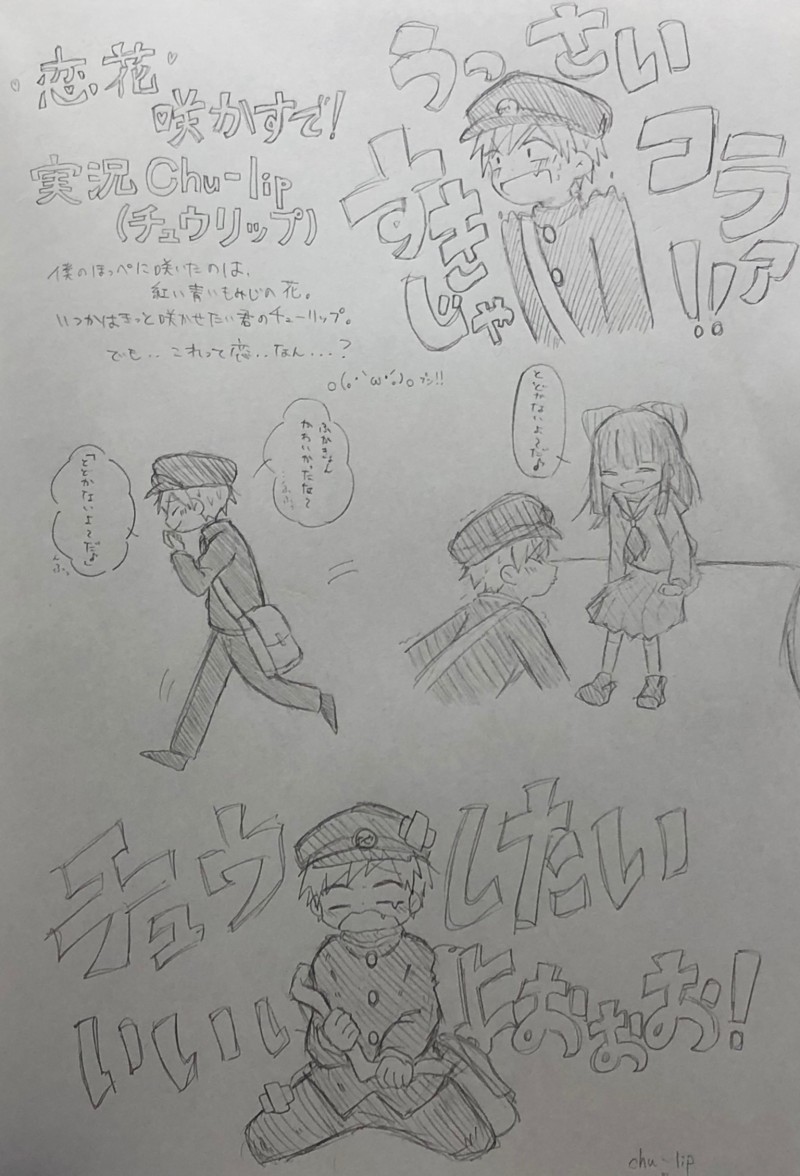 恋花
咲かすで!
実況 Chu-lip
(チュウリップ)
うっさい
コラァ!!
すきじゃ
僕のほっぺに咲いたのは、
紅い青いもみじの花。
いつかはきっと咲かせたい君のチューリップ。
でも‥これって恋‥なん‥‥?
o(｡･`ω･´｡)o プン!!
とどかないよ〜だ♪
ふかきょん
かわいかったな〜
ふふ。
「とどかないよ〜だ♪」
ふっ
チュウしたい
いいいよぉぉぉ!
chu-lip